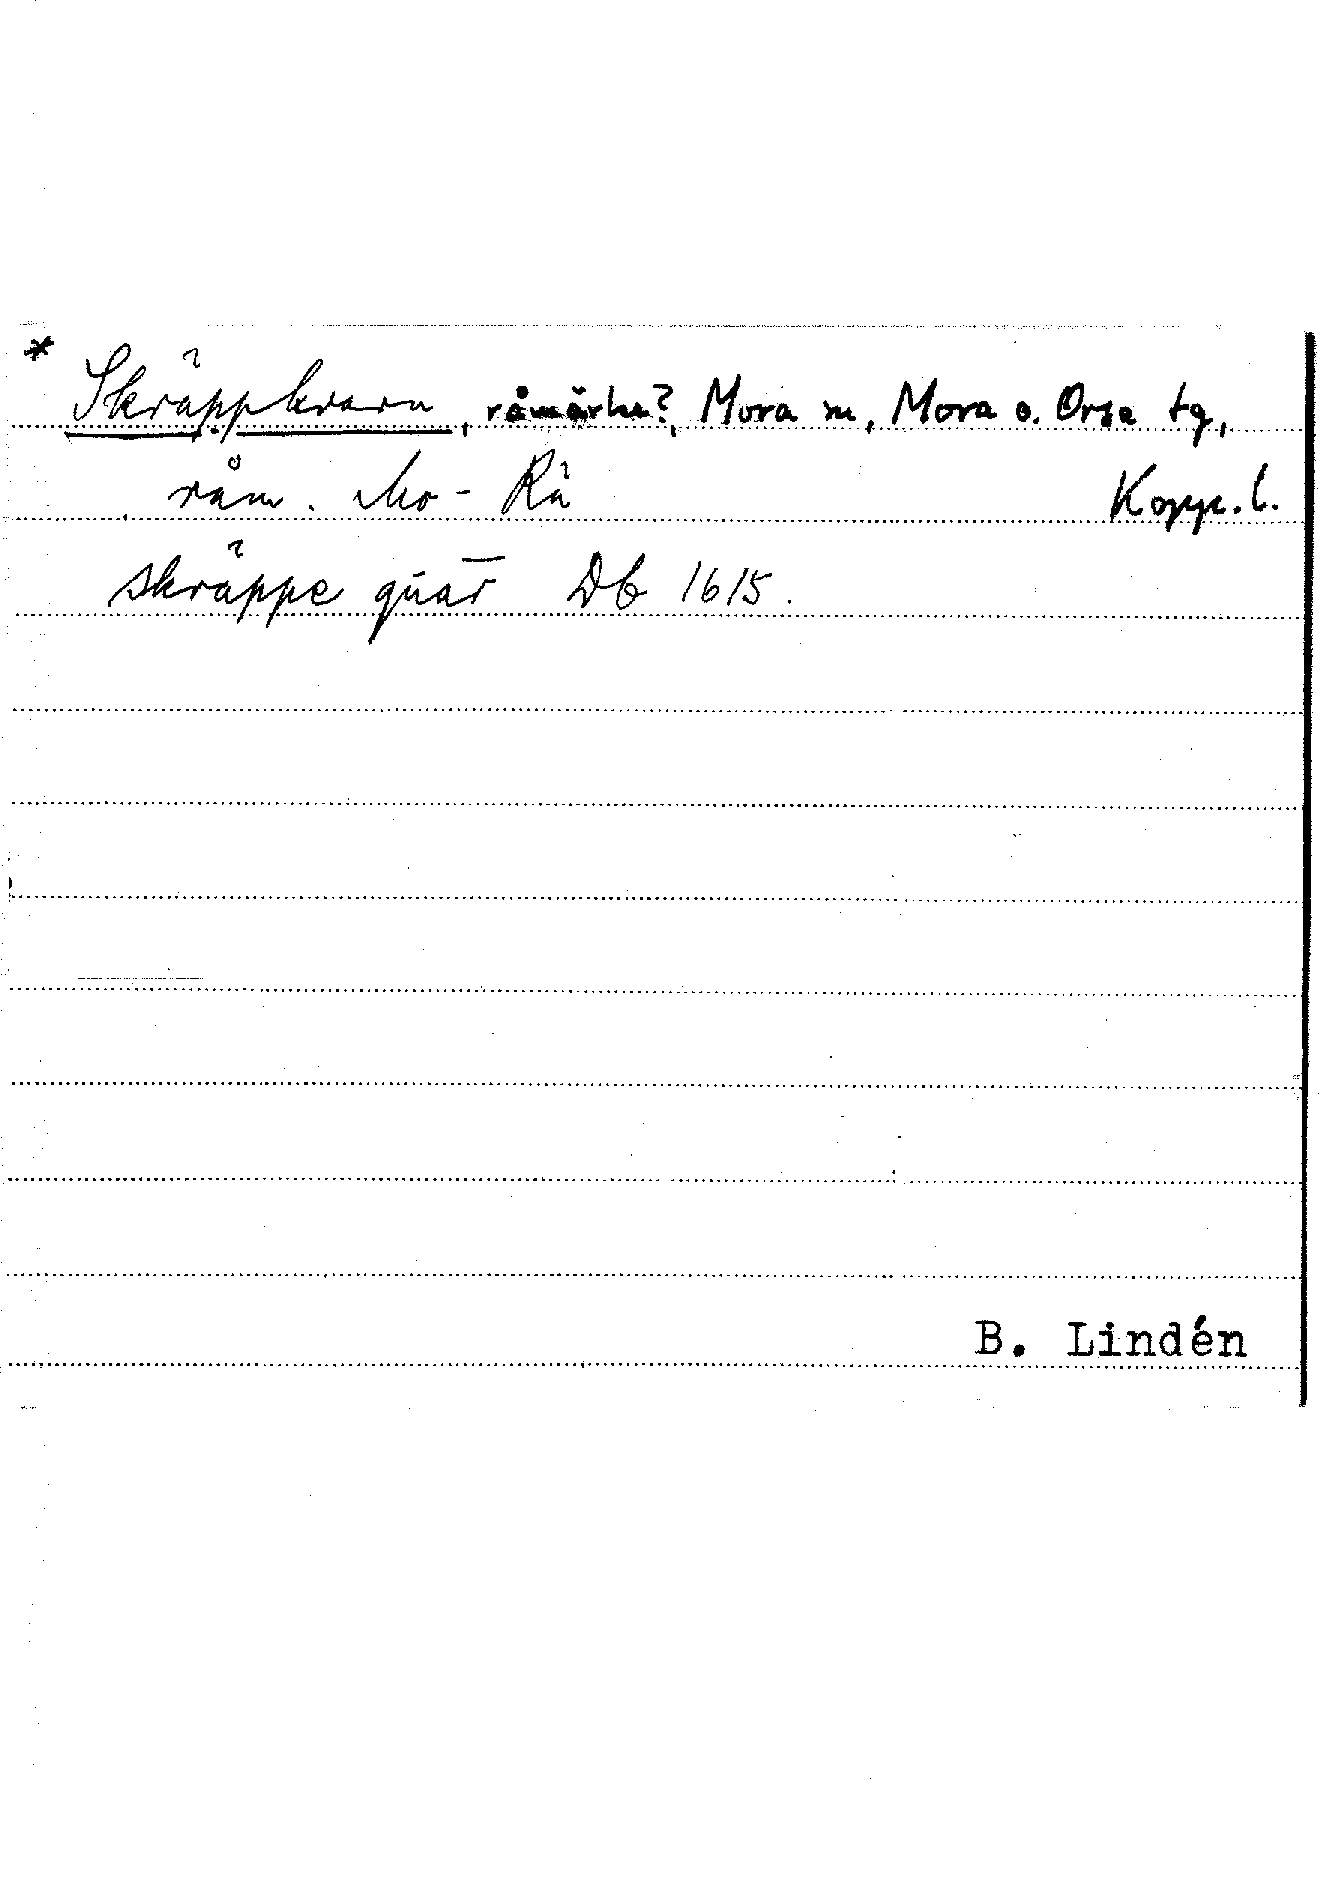 * Skräppkvarn, råmärke?, Mora sn, Mora o. Orsa tg,
råm. Mo - Rå Kopp. l.
skräppe quar̄ Db 1615.
B. Lindén